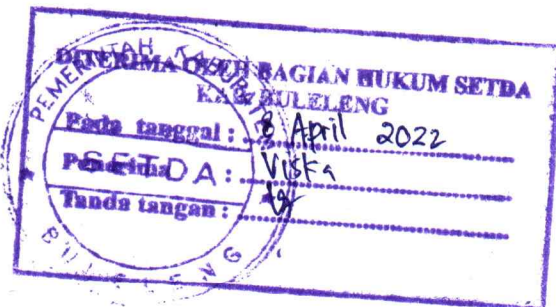 DITERIMA OLEH BAGIAN HUKUM SETDA
KAB. BULELENG
Pada tanggal : 8 April 2022
Penerima : Viska
Tanda tangan :
PEMERINTAH KABUPATEN
SETDA
BULELENG